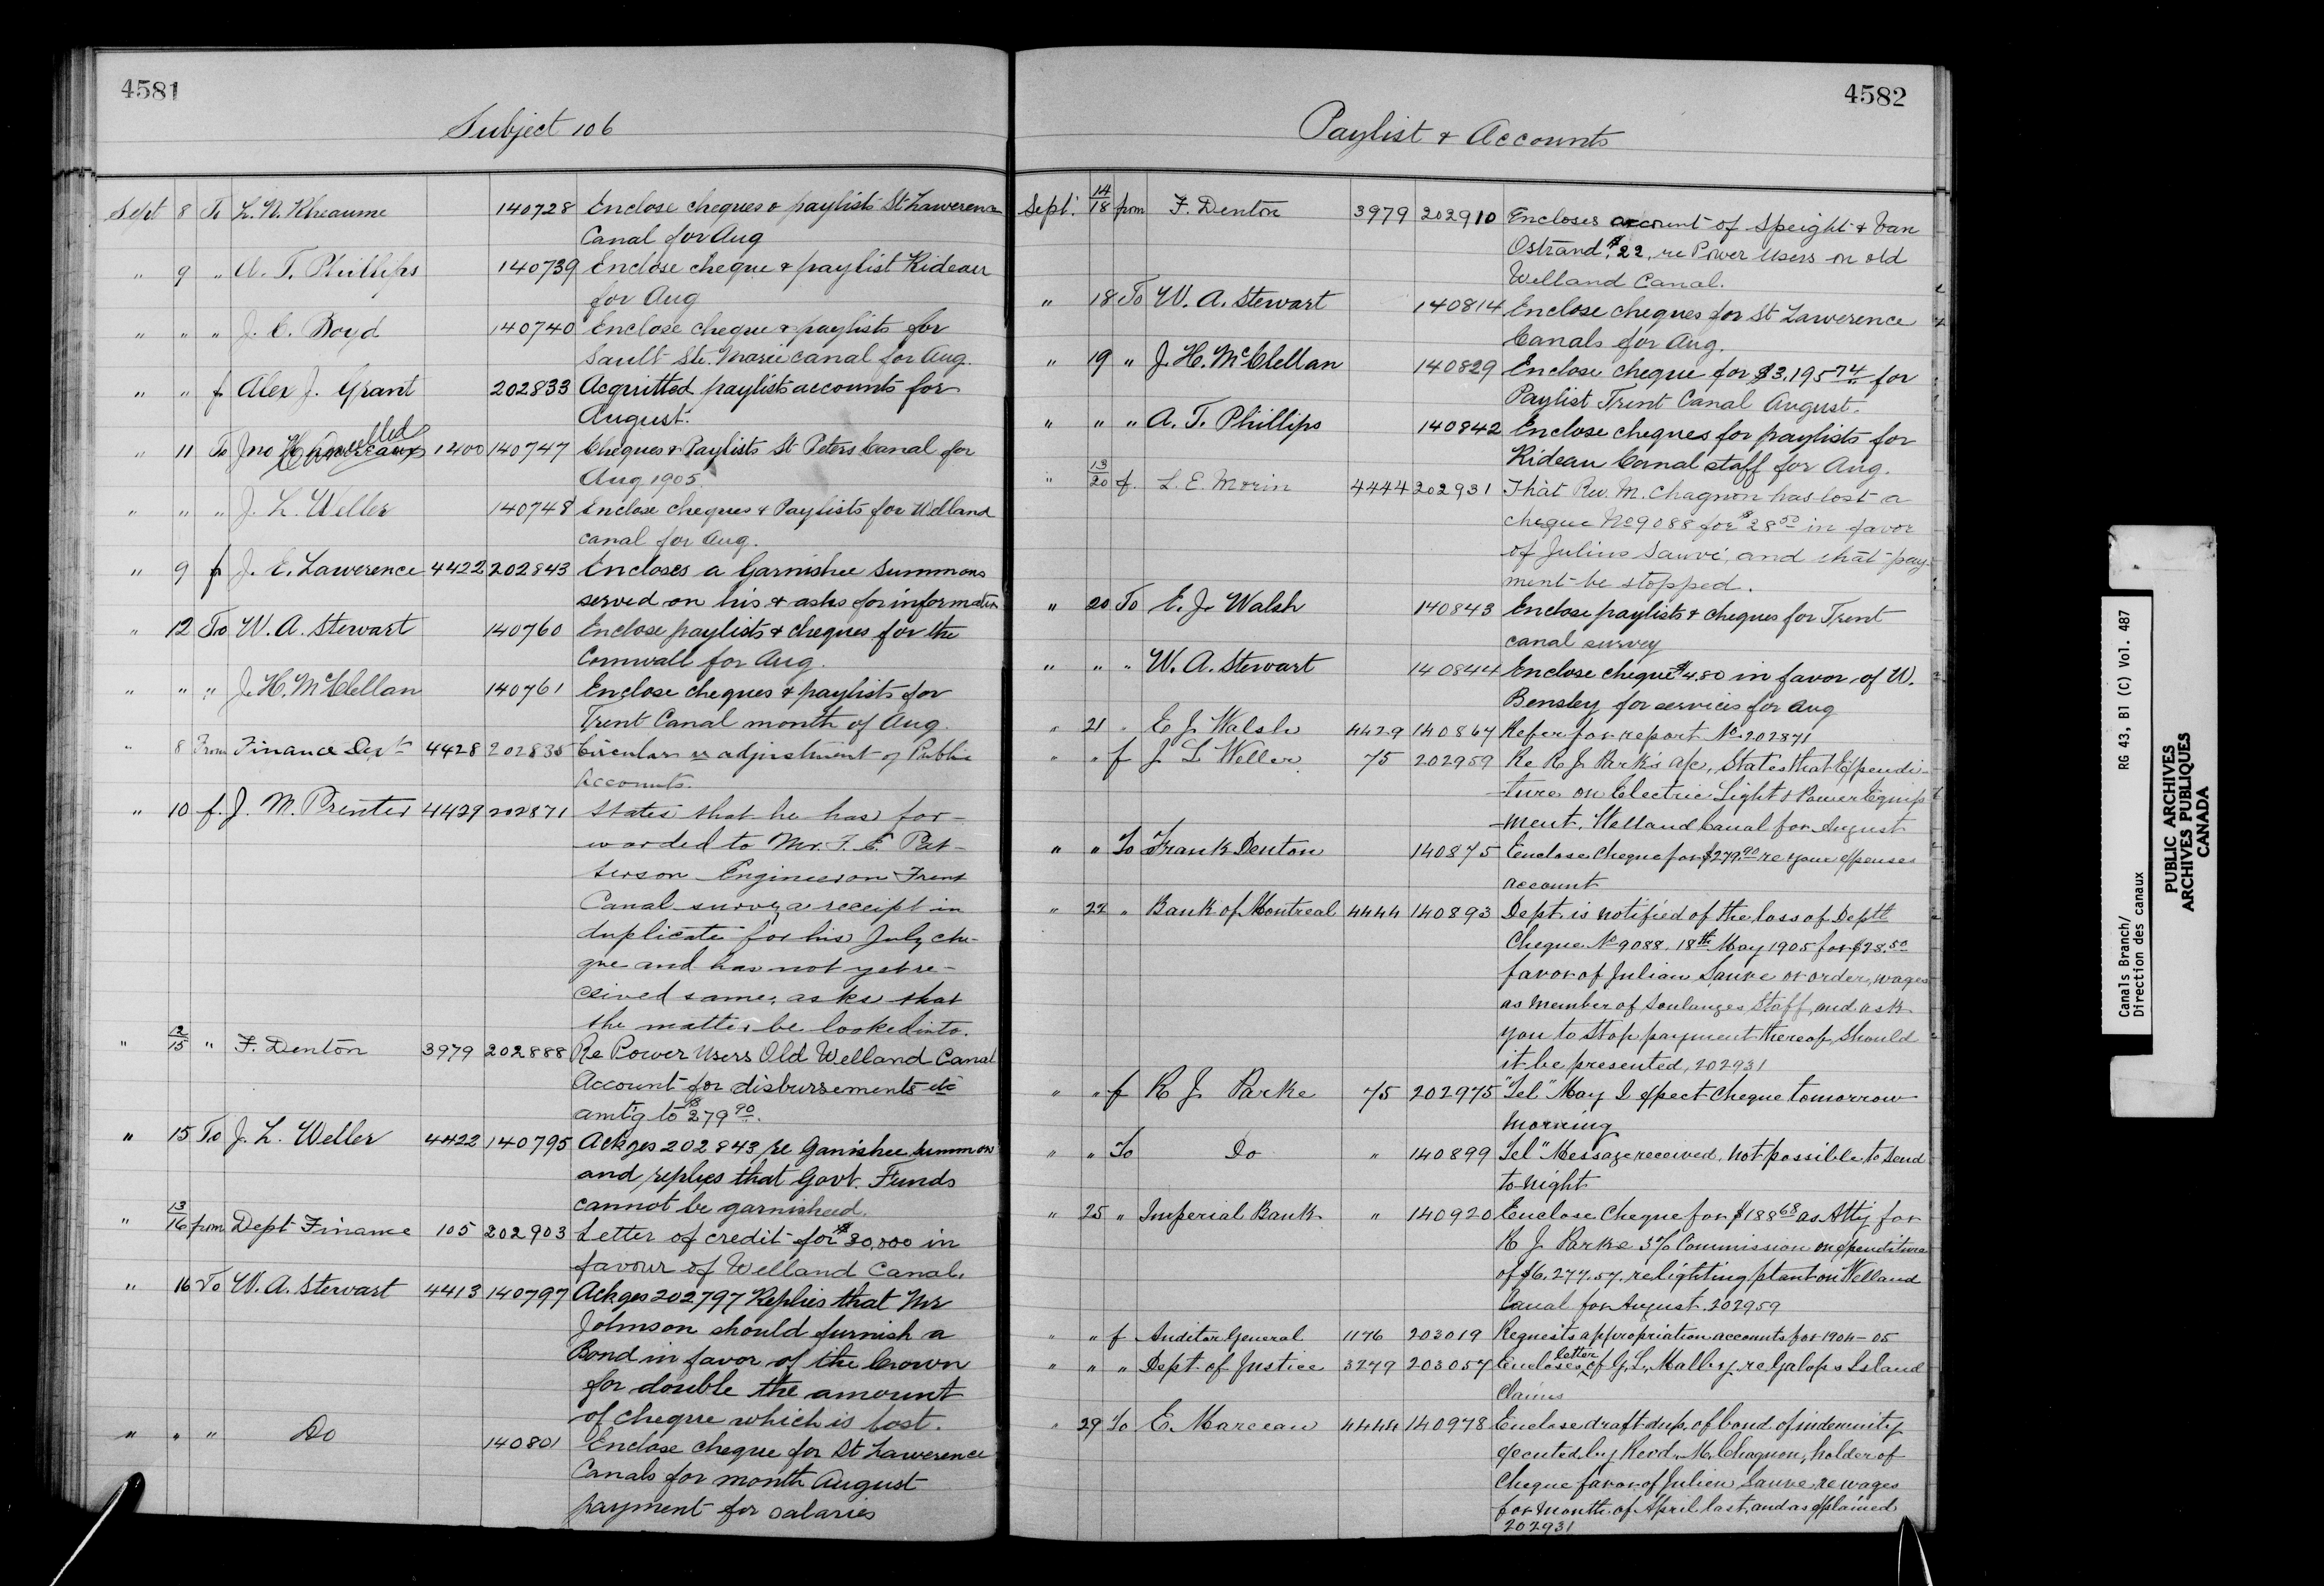 4581
Subject 106
Sept 8 To L. N. Rheaume 140728 Enclose cheques & paylists St Lawerence
Canal for Aug
" 9 " A. T. Phillips 140739 Enclose cheque & paylist Rideau
for Aug
" " " J. C. Boyd 140740 Enclose cheque & paylists for
Sault Ste. Marie canal for Aug.
" " f Alex J. Grant 202833 Acquitted paylists accounts for
August.
" 11 To Jno Cancelled 1200 140747 Cheques & Paylists St Peters Canal for
Aug 1905.
" " " J. L. Weller 140748 Enclose cheques & Paylists for Welland
canal for Aug.
" 9 f J. E. Lawerence 4422 202843 Encloses a Garnishee Summons
served on his & asks for information
" 12 To W. A. Stewart 140760 Enclose paylists & cheques for the
Cornwall for Aug.
" " " J. H. McClellan 140761 Enclose cheques & paylists for
Trent Canal month of Aug.
" 8 From Finance Dept 4428 202835 Circular re adjustment of Public
Accounts.
" 10 f. J. M. Prenter 4429 202871 States that he has for-
warded to Mr. F. E. Pat-
terson Engineer on Trent
Canal survey a receipt in
duplicate for his July che-
que and has not yet re-
ceived same, asks that
the matter be looked into.
" 12/15 " F. Denton 3979 202888 Re Power Users Old Welland Canal
Account for disbursements etc
amt'g to $279 90.
" 15 To J. L. Weller 4422 140795 Ackges 202843 re Ganishee summons
and replies that Govt. Funds
cannot be garnisheed.
" 13/16 from Dept Finance 105 202903 Letter of credit for $30,000 in
favour of Welland Canal.
" 16 To W. A. Stewart 4413 140797 Ackges 202797 Replies that Mr
Johnson should furnish a
Bond in favor of the Crown
for double the amount
of cheque which is lost.
" " " Do 140801 Enclose cheque for St Lawerence
Canals for month August
payment for salaries
4582
Paylist & Accounts
Sept. 14/18 from F. Denton 3979 202910 Encloses account of Speight & Van
Ostrand $22, re Power Users on old
Welland Canal.
" 18 To W. A. Stewart 140814 Enclose cheques for St Lawerence
Canals for Aug.
" 19 " J. H. McClellan 140829 Enclose cheque for $3,195 74 for
Paylist Trent Canal August.
" " " A. T. Phillips 140842 Enclose cheques for paylists for
Rideau Canal staff for Aug.
" 13/20 f. L. E. Morin 4444 202931 That Rev. M. Chagnon has lost a
cheque No 9088 for $28 50 in favor
of Julius Sauvé, and that pay-
ment be stopped.
" 20 To E. J. Walsh 140843 Enclose paylists & cheques for Trent
canal survey
" " " W. A. Stewart 140844 Enclose cheque $4.80 in favor of W.
Bensley for services for Aug
" 21 " E J Walsh 4429 140867 Refer for report No 202871
" " f J L Weller 75 202959 Re R J Park's a/c, States that Expendi-
-ture on Electric Light & Power Equip
-ment, Welland Canal for August
" " To Frank Denton 140875 Enclose Cheque for $279.90 re your expenses
account
" 22 " Bank of Montreal 4444 140893 Dept. is notified of the loss of Deptl
Cheque No 9088, 18th May 1905 for $28.50
favor of Julian Sauve or order, wages
as member of Soulanges Staff, and ask
you to stop payment thereof, should
it be presented, 202931
" " f R J Parke 75 202975 "Tel" May I expect cheque tomorrow
morning
" " To Do " 140899 Tel" Message received. not possible to send
to-night
" 25 " Imperial Bank " 140920 Enclose Cheque for $188 68 as Atty for
R J Parke 3% Commission on expenditure
of $6,277.57, re lighting plant on Welland
Canal for August. 202959
" " f Auditor General 1176 203019 Requests appropriation accounts for 1904-05
" " " Dept. of Justice 3279 203057 Encloses letter of G. L. Malby re Galops Island
Claims
" 29 To E. Marceau 4444 140978 Enclose draft dup. of bond of indemnity
executed by Revd. M. Chagnon, holder of
Cheque favor of Julien Sauve, re wages
for month of April last, and as explained
202931
Canals Branch/ RG 43, B1 (C) Vol. 487
Direction des canaux
PUBLIC ARCHIVES
ARCHIVES PUBLIQUES
CANADA